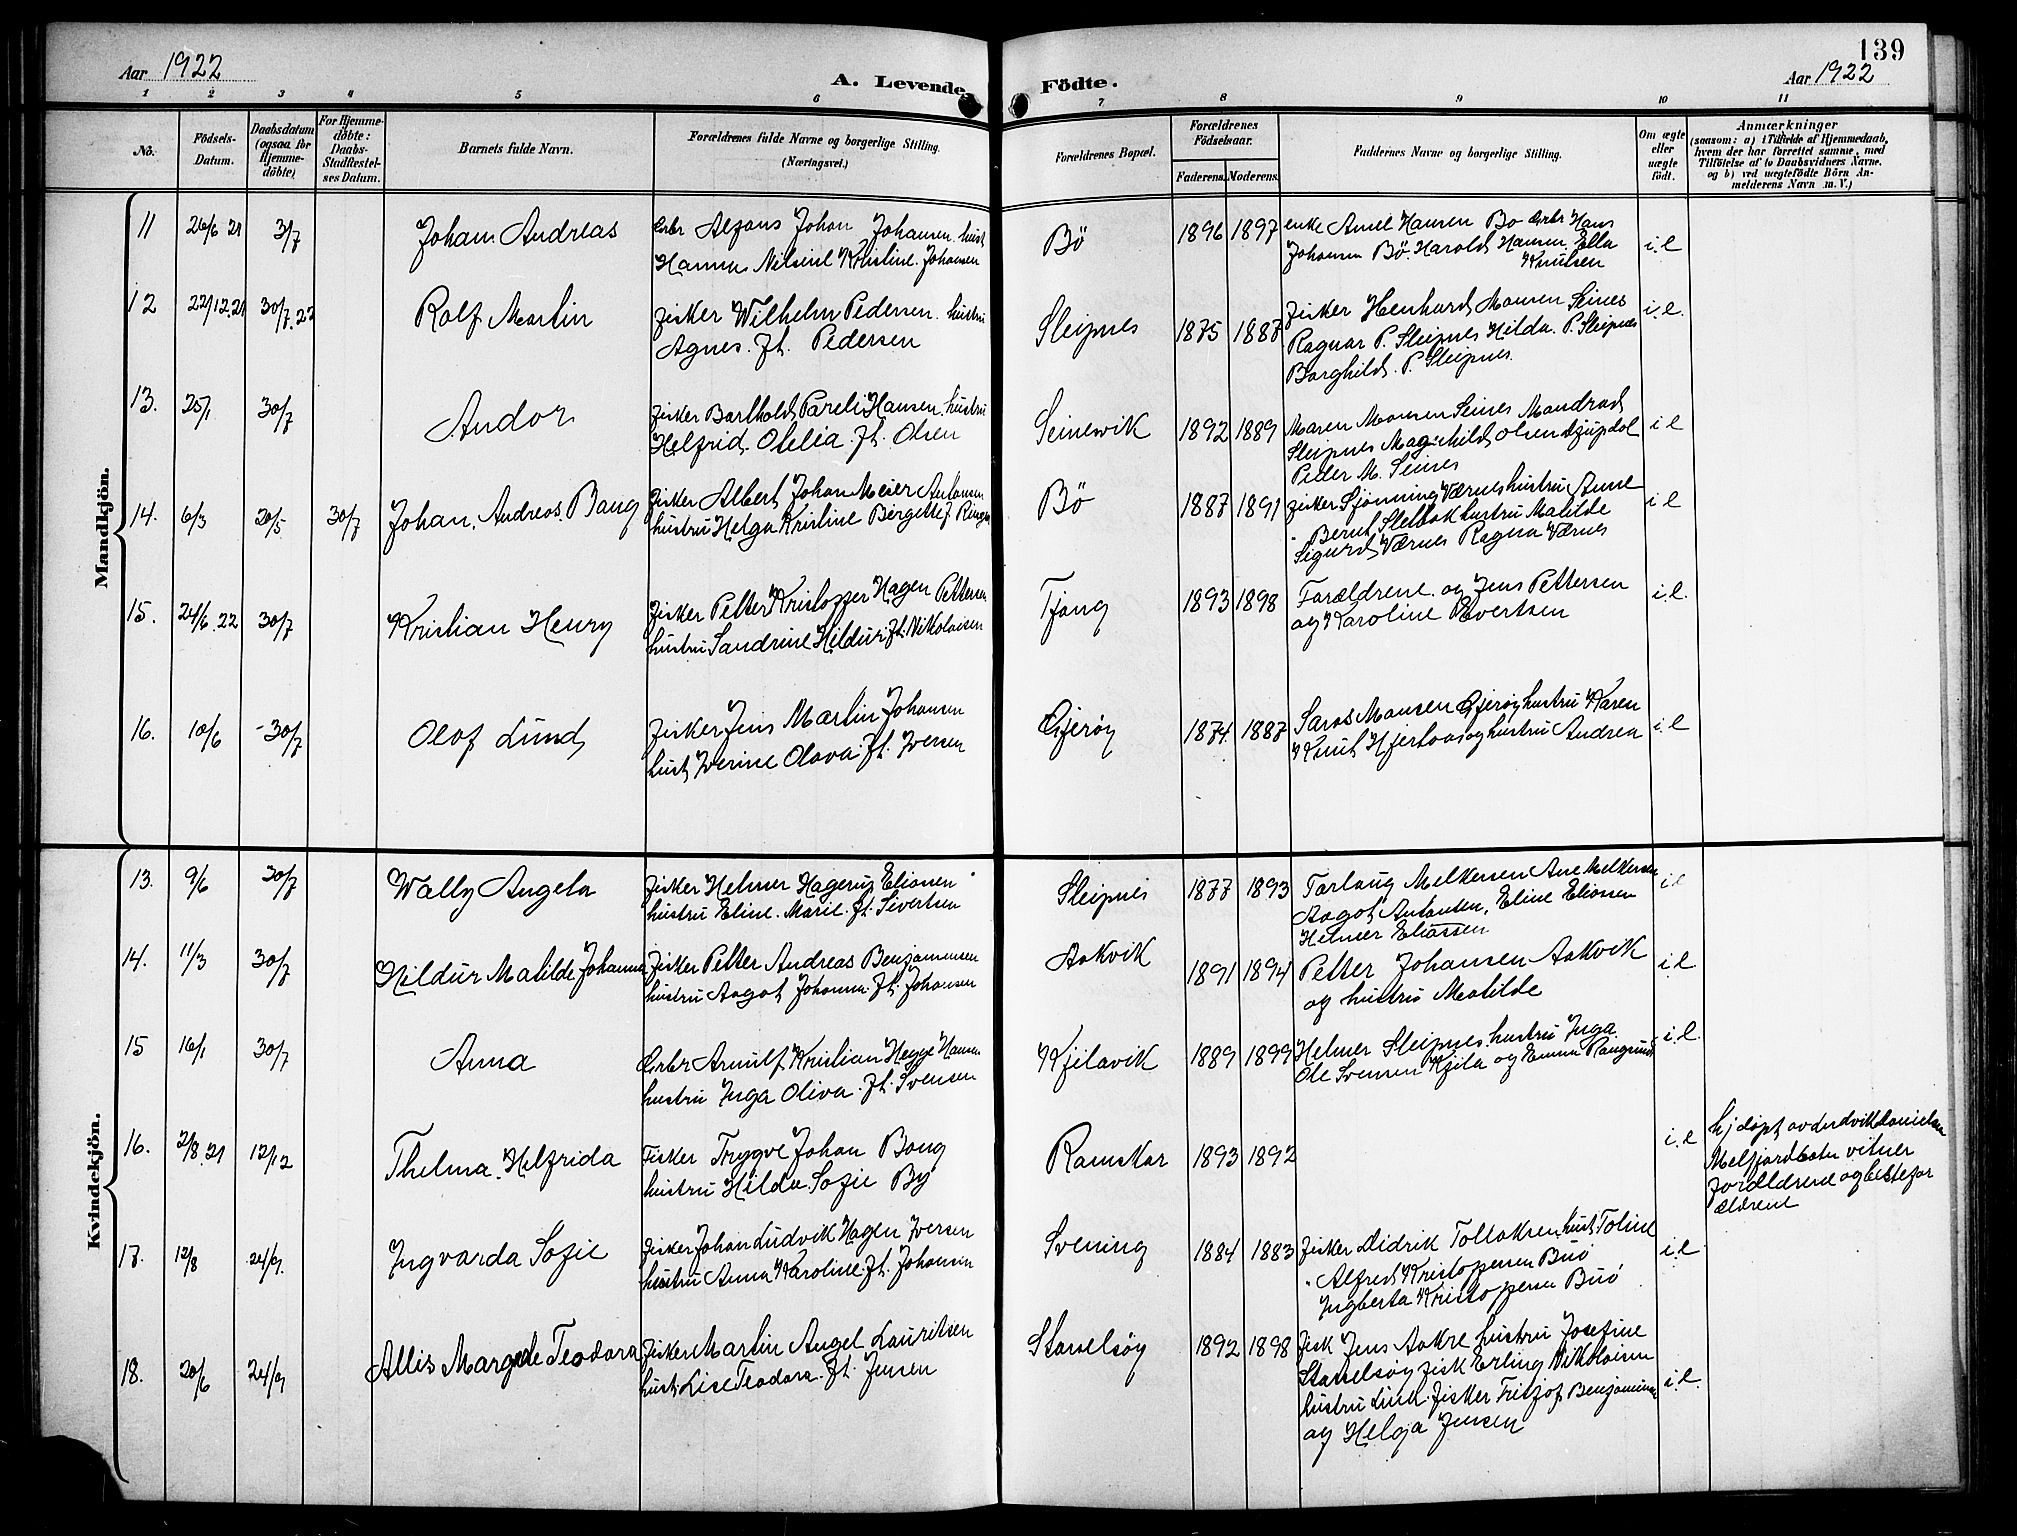 Aar 1922
A. Levende Födte.
139
Aar 1922
1 2 3 4 5 6 7 8 9 10 11
No.
Födsels-
Datum.
Daabsdatum
(ogsaa for
Hjemme-
döbte)
For Hjemme-
döbte:
Daabs-
Stadfæstel-
ses Datum.
Barnets fulde Navn.
Forældrenes fulde Navne og borgerlige Stilling.
(Næringsvei.)
Forældrenes Bopæl.
Forældrenes
Födselsaar.
Faderens. Moderens.
Faddernes Navne og borgerlige Stilling.
Om ægte
eller
uægte
födt.
Anmærkninger
(saasom: a) i Tilfælde af Hjemmedaab,
hvem der har forrettet samme, med
Tilföielse af to Daabsvidners Navne.
og b) ved uægtefödte Börn An-
melderens Navn m. V.)
Mandkjön.
11 26/6 21 3/7 Johan Andreas
Johan Johansen hust
Kristine Johansen
Bö 1896 1897
enke Hansen Bö Hans
Johansen Bö. Harold Hansen Ella
Knutsen
i. e
12 22/12.21 30/7.22 Rolf Martin
fisker Wilhelm Pedersen hustru
Agnes. ft. Pedersen
Sleipnes 1875 1887
fisker Henhard Monsen Seines
Ragnar P. Sleipnes Hilda. P. Sleipnes
Borghild. P. Sleipnes.
i. e.
13. 25/1 30/7 Andor
fisker Barthold Pareli Hansen hustru
Helfrid Otelia. ft. Olsen
Seinesvik 1892 1889
Maren Monsen Seines Mandrad
Sleipnes Magnhild Olsen
Peder M. Seines
i e
14. 6/3 20/5 30/7 Johan. Andreas. Bang
fisker Albert Johan Meier Antonsen
hustru Helga Kristine Bergette f
Bö 1887 1891
fisker Værnes hustru Anne
Bernt hustru Matilde
Sigurd Værnes Ragna Værnes
i e
15. 24/6.22 30/7 Kristian Henry
fisker Petter Kristoffer Hagen Pettersen
hustru Sandrine Hildur ft. Nikolaisen
Tjong 1893 1898
Forældrene og Jens Pettersen
og Karoline Evertsen
i. e.
16. 10/6 30/7 Olof Lund
fisker Jens Martin Johansen
hust Iverine Olava. ft. Iversen
Gjerøy 1874. 1887
Monsen Gjerøy hustru Karen
Knut og hustru Andrea
i. e
Kvindekjön.
13. 9/6 30/7 Wally Angela
fisker Helmer Hagerup Eliassen
hustru Eline. Marie. ft. Sivertsen
Sleipnes 1877 1893
Torlaug Melkersen Ane Melkersen
Aagot Antonsen, Eline Eliassen
Helmer Eliassen
i e
14. 11/3 30/7 Hildur Matilde Johanna
fisker Petter Andreas Benjaminsen
hustru Aagot Johanna. ft. Johansen
Aakvik 1891 1894
Petter Johansen Aakvik
og hustru Matilde
i. e.
15 16/1 30/7 Anna
Arnulf Kristian Hegge Hansen
hustru Inga Oliva. ft. Svensen
Kjelavik 1889 1899
Helmer Sleipnes hustru Inga
Ole Svensen Kjila og Emma
i. e.
16. 2/8.21 12/12 Thelma. Helfrida
Fisker Trygve Johan Bang
hustru Hilda. Sofie By
Ramskar 1893 1892
i. e
hj døpt av
Melfjordbotn vitner
forældrene og bestefor
ældrene
17. 12/8 24/9. Ingvarda Sofie
fisker Johan Ludvik Hagen Iversen
hustru Anna Karoline. ft. Johansen
Svening 1884 1883
fisker Didrik Tollaksen. hust. Toline
Alfred Kristoffersen Buø
Ingberta Kristoffersen Buø
i. e.
18. 20/6 24/9 Allis Margrete Teodora
fisker Martin Angel Lauritsen
hust. Lise Teodora. ft. Jensen
Stasselsøy 1892 1898
fisk Jens Aakre hustru Josefine
Stasselsøy fisk Erling Nikolaisen
hustru Lina. fisker Fritjof. Benjaminsen
og Helga Jensen
i. e.